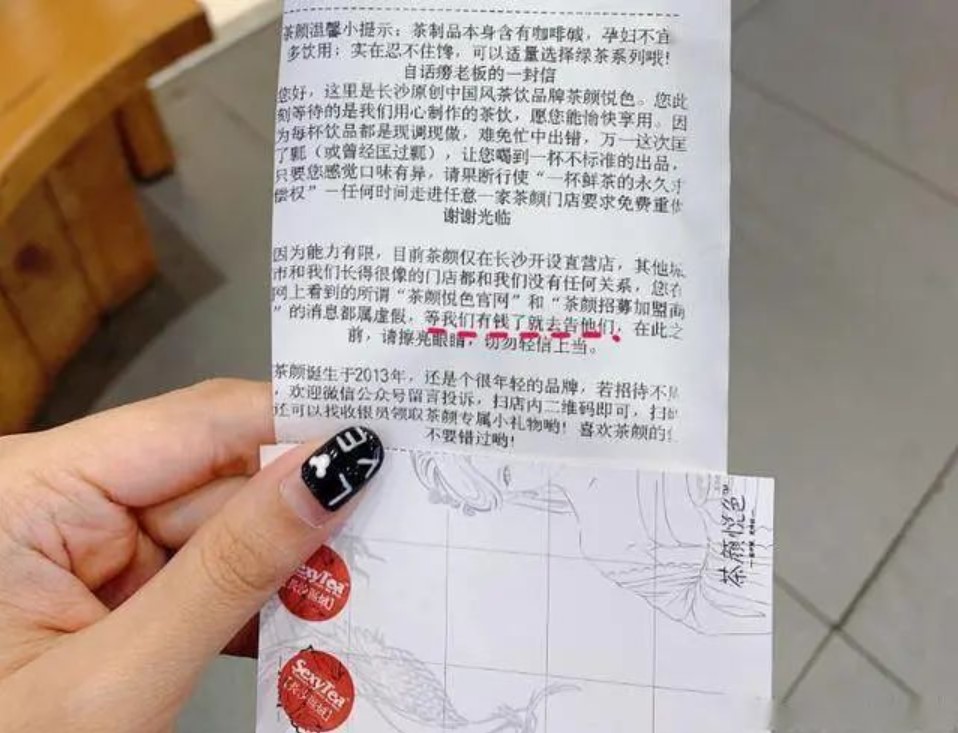 茶颜温馨小提示：茶制品本身含有咖啡碱，孕妇不宜
多饮用；实在忍不住馋，可以适量选择绿茶系列哦！
自话痨老板的一封信
您好，这里是长沙原创中国风茶饮品牌茶颜悦色。您此
刻等待的是我们用心制作的茶饮，愿您能怡快享用。因
为每杯饮品都是现调现做，难免忙中出错，万一这次匡
了瓢（或曾经匡过瓢），让您喝到一杯不标准的出品，
只要您感觉口味有异，请果断行使“一杯鲜茶的永久
偿权”－任何时间走进任意一家茶颜门店要求免费重
谢谢光临
因为能力有限，目前茶颜仅在长沙开设直营店，其他
市和我们长得很像的门店都和我们没有任何关系，您
网上看到的所谓“茶颜悦色官网”和“茶颜招募加盟商
”的消息都属虚假，等我们有钱了就去告他们，在此之
前，请擦亮眼睛，切勿轻信上当。
茶颜诞生于2013年，还是个很年轻的品牌，若招待不
，欢迎微信公众号留言投诉，扫店内二维码即可，扫
还可以找收银员领取茶颜专属小礼物哟！喜欢茶颜的
不要错过哟！
茶颜悦色
SexyTea
SexyTea